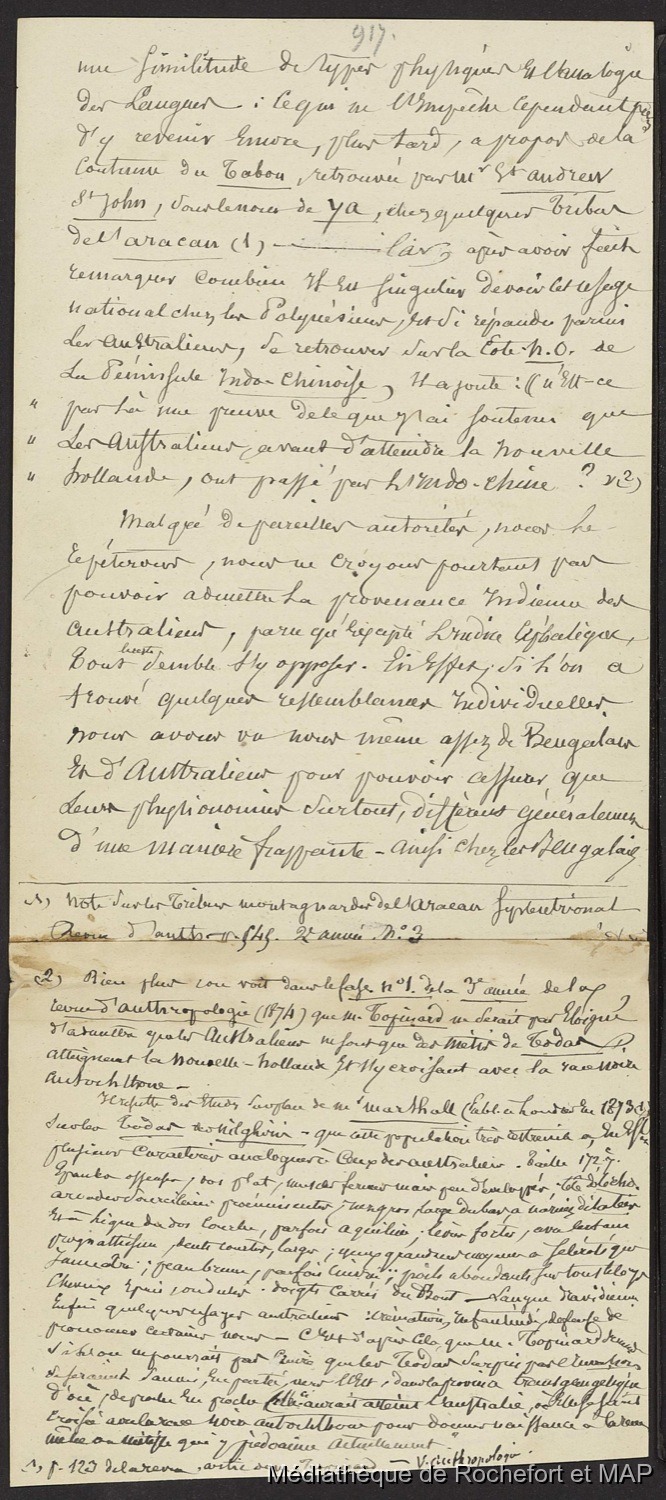 917.
une similitude de types physiques et l'analogie
des langues : ce qui ne l'empêche cependant pas
d'y revenir encore, plus tard, a propos de la
coutume du Tabou, retrouvée par Mr St Andrew
St John, sous le nom de Ya, chez quelques tribus
de l'aracan (1) — Car, après avoir fait
remarquer combien il est singulier de voir cet usage
national chez les Polynésiens, et si répandu parmi
les australiens, se retrouver sur la Cote N.O. de
la Péninsule indo-chinoise, il ajoute : « N'est-ce
" pas là une preuve de ce que j'ai soutenu que
" les australiens, avant d'atteindre la nouvelle
" hollande, ont passé par l'Indo-chine ? » (2)
Malgré de pareilles autorités, nous le
répéterons, nous ne croyons pourtant pas
pouvoir admettre la provenance indienne des
australiens, parce qu'excepté l'indice céphalique,
tout semble s'y opposer. En effet, si l'on a
trouvé quelques ressemblances individuelles
nous avons vu nous même assez de Bengalais
et d'Australiens pour pouvoir assurer que
leurs physionomies surtout, diffèrent généralement
d'une manière frappante - ainsi chez les Bengalais
(1) Note sur les tribus montagnardes de l'aracan septentrional
Revue d'anth. p. 545. 2e année. No. 3
(2) Bien plus, on voit dans le fasc. no 1. de la 3e année de la
revue d'anthropologie (1874) que M. Topinard ne serait pas éloigné
d'admettre que les Australiens ne sont que des métis de Todas
atteignant la nouvelle-hollande et s'y croisant avec la race noire
autochthone -
Il résulte des études sur place de Mr Marshall (publié à Londres en 1873)
sur les Todas des Nilghiris - que cette population très restreinte a, en effet
plusieurs caractères analogues à ceux des australiens. Taille 1727.
prognathisme, dents courtes, larges
jaunâtre ; peau brune, parfois cuivrée ; poils abondants sur tout le corps
cheveux épais, ondulés. doigts carrés du bout - langue dravidienne
Enfin quelques usages australiens : crémation, infanticide, défense de
prononcer certains noms - C'est d'après cela, que M. Topinard demande
si l'on ne pourrait pas croire que les Todas surpris par l'invasion
se seraient sauvés, en partie, vers l'Est, dans la province transgangétique
d'où, de proche en proche, aurait atteint l'australie, où
croisé avec la race noire autochthone pour donner naissance à la race
métisse qui y prédomine actuellement."
(1) p. 123 de la revue - V. anthropologie.
Médiathèque de Rochefort et MAP